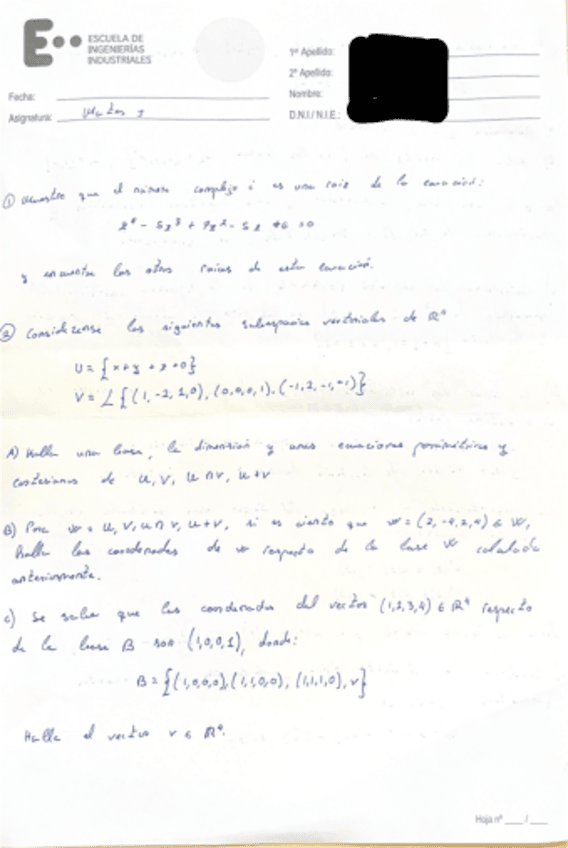 E ESCUELA DE
INGENIERÍAS
INDUSTRIALES
1º Apellido:
2º Apellido:
Nombre:
D.N.I / N.I.E.:
Fecha:
Asignatura: Mates I
① Demuestre que el número complejo i es una raiz de la ecuación:
z⁴ - 5z³ + 7z² - 5z + 6 = 0
y encuentra las otras raices de esta ecuación.
② Considerense los siguientes subespacios vectoriales de ℝ⁴
U = {x+y+z=0}
V = L{(1,-2,1,0), (0,0,0,1), (-1,2,-1,-1)}
A) Halla una base, la dimensión y unas ecuaciones paramétricas y
cartesianas de U, V, U∩V, U+V
B) Para W = U, V, U∩V, U+V, si es cierto que w = (2,-4,2,4) ∈ W,
Halla las coordenadas de w respecto de la base W calculada
anteriormente.
C) Se sabe que las coordenadas del vector (1,2,3,4) ∈ ℝ⁴ respecto
de la base B son (1,0,0,1), donde:
B = {(1,0,0,0), (1,1,0,0), (1,1,1,0), v}
Halla el vector v ∈ ℝ⁴.
Hoja nº ____ / ____